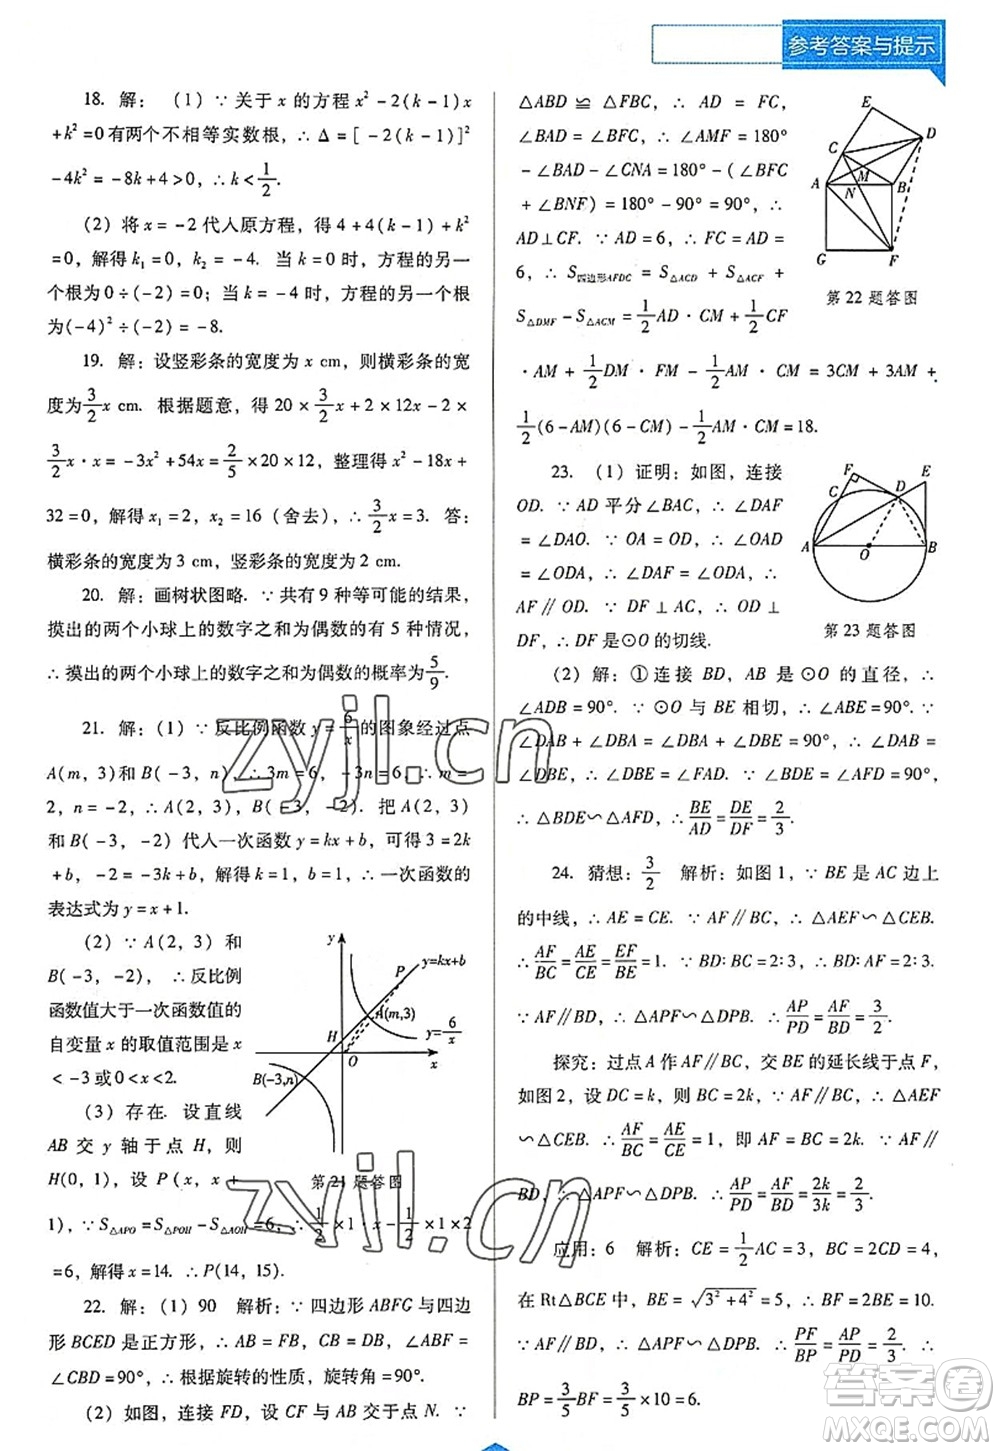 参考答案与提示
18. 解：(1)∵关于x的方程x²-2(k-1)x
+k²=0有两个不相等实数根，∴Δ=[-2(k-1)]²
-4k²=-8k+4>0，∴k<1/2.
(2)将x=-2代人原方程，得4+4(k-1)+k²
=0，解得k₁=0，k₂=-4. 当k=0时，方程的另一
个根为0÷(-2)=0；当k=-4时，方程的另一个根
为(-4)²÷(-2)=-8.
19. 解：设竖彩条的宽度为x cm，则横彩条的宽
度为3/2x cm. 根据题意，得20×3/2x+2×12x-2×
3/2x·x=-3x²+54x=2/5×20×12，整理得x²-18x+
32=0，解得x₁=2，x₂=16（舍去），∴3/2x=3. 答：
横彩条的宽度为3 cm，竖彩条的宽度为2 cm.
20. 解：画树状图略. ∵共有9种等可能的结果，
摸出的两个小球上的数字之和为偶数的有5种情况，
∴摸出的两个小球上的数字之和为偶数的概率为5/9.
21. 解：(1)∵反比例函数y=6/x的图象经过点
A(m，3)和B(-3，n)，∴3m=6，-3n=6，∴m=
2，n=-2，∴A(2，3)，B(-3，-2). 把A(2，3)
和B(-3，-2)代人一次函数y=kx+b，可得3=2k
+b，-2=-3k+b，解得k=1，b=1，∴一次函数的
表达式为y=x+1.
(2)∵A(2，3)和
B(-3，-2)，∴反比例
函数值大于一次函数值的
自变量x的取值范围是x
<-3或0<x<2.
(3)存在. 设直线
AB交y轴于点H，则
H(0，1)，设P(x，x+
y
y=kx+b
P
A(m,3)
H
y=6/x
O
x
B(-3,n)
第21题答图
1)，∵S△APO=S△POH-S△AOH=6，∴1/2×1·x-1/2×1×2
=6，解得x=14. ∴P(14，15).
22. 解：(1)90 解析：∵四边形ABFG与四边
形BCED是正方形，∴AB=FB，CB=DB，∠ABF=
∠CBD=90°. 根据旋转的性质，旋转角=90°.
(2)如图，连接FD，设CF与AB交于点N. ∵
△ABD≌△FBC，∴AD=FC，
∠BAD=∠BFC，∴∠AMF=180°
-∠BAD-∠CNA=180°-(∠BFC
+∠BNF)=180°-90°=90°，∴
AD⊥CF. ∵AD=6，∴FC=AD=
6，∴S四边形AFDC=S△ACD+S△ACF+
S△DMF-S△ACM=1/2AD·CM+1/2CF
·AM+1/2DM·FM-1/2AM·CM=3CM+3AM+
1/2(6-AM)(6-CM)-1/2AM·CM=18.
E
C
D
A
M
N
B
G
F
第22题答图
23. (1)证明：如图，连接
OD. ∵AD平分∠BAC，∴∠DAF
=∠DAO. ∵OA=OD，∴∠OAD
=∠ODA，∴∠DAF=∠ODA，∴
AF∥OD. ∵DF⊥AC，∴OD⊥
DF，∴DF是⊙O的切线.
F
C
D
E
A
O
B
第23题答图
(2)解：①连接BD，AB是⊙O的直径，∴
∠ADB=90°. ∵⊙O与BE相切，∴∠ABE=90°. ∵
∠DAB+∠DBA=∠DBA+∠DBE=90°，∴∠DAB=
∠DBE，∴∠DBE=∠FAD. ∵∠BDE=∠AFD=90°，
∴△BDE∽△AFD，∴BE/AD=DE/DF=2/3.
24. 猜想：3/2 解析：如图1，∵BE是AC边上
的中线，∴AE=CE. ∵AF∥BC，∴△AEF∽△CEB.
∴AF/BC=AE/CE=EF/BE=1. ∵BD∶BC=2∶3，∴BD∶AF=2∶3.
∵AF∥BD，∴△APF∽△DPB. ∴AP/PD=AF/BD=3/2.
探究：过点A作AF∥BC，交BE的延长线于点F，
如图2，设DC=k，则BC=2k，∵AF∥BC，∴△AEF
∽△CEB. ∴AF/BC=AE/CE=1，即AF=BC=2k. ∵AF∥
BD，∴△APF∽△DPB，∴AP/PD=AF/BD=2k/3k=2/3.
应用：6 解析：CE=1/2AC=3，∵BC=4，
在Rt△BCE中，BE=√(3²+4²)=5，∴BF=2BE=10.
∵AF∥BD，∴△APF∽△DPB，∴PF/BP=AP/PD=2/3. ∴
BP=3/5BF=3/5×10=6.
zyjl.cn
zyjl.cn
答案圈
MXQE.COM